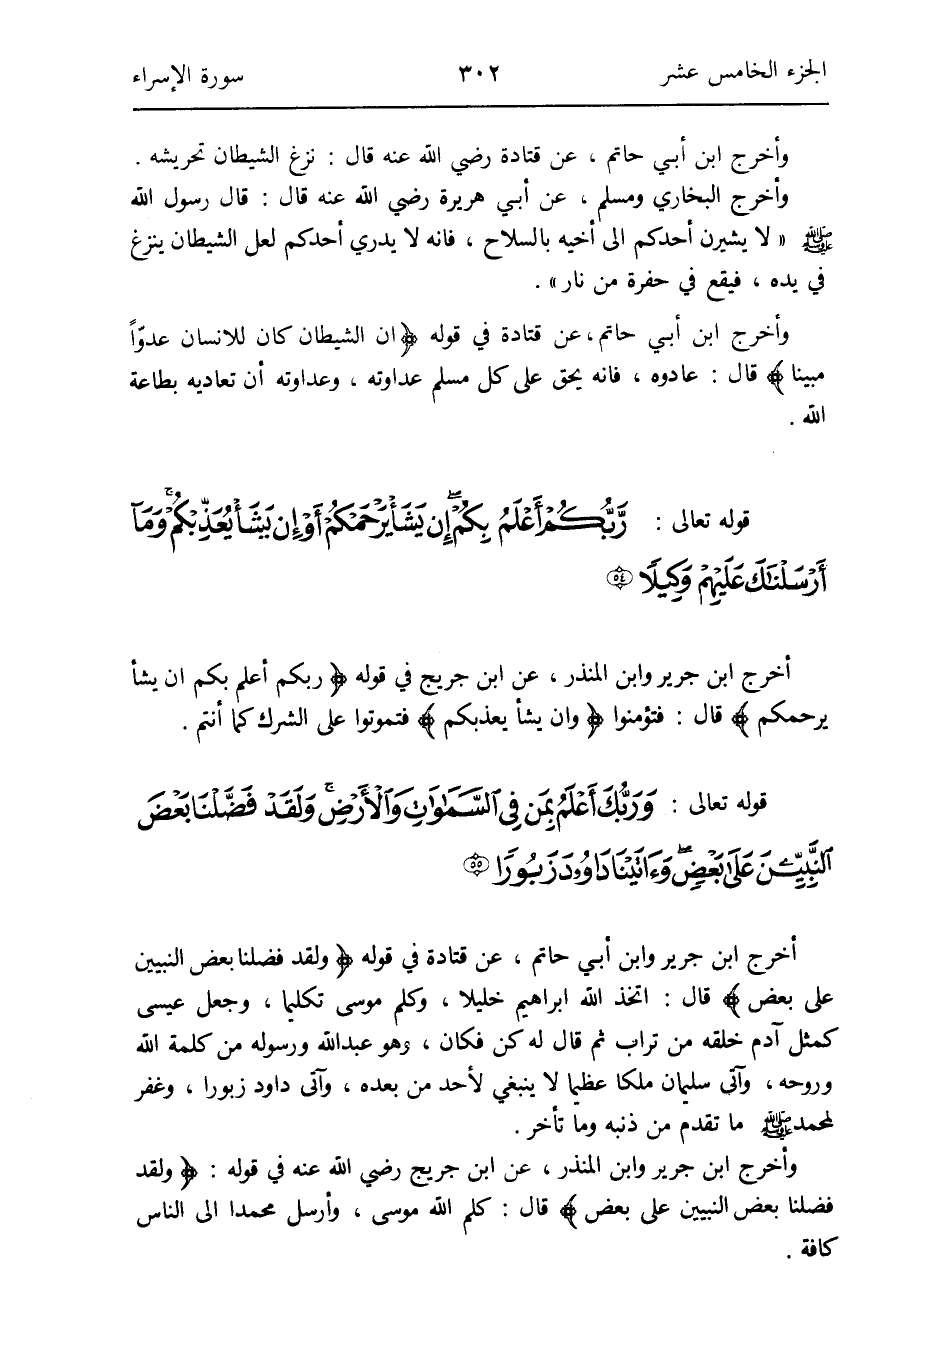 الجزء الخامس عشر ٣٠٢ سورة الإسراء
وأخرج ابن أبي حاتم ، عن قتادة رضي الله عنه قال : نزغ الشيطان تحريشه .
وأخرج البخاري ومسلم ، عن أبي هريرة رضي الله عنه قال : قال رسول الله
ﷺ « لا يشيرن أحدكم الى أخيه بالسلاح ، فانه لا يدري أحدكم لعل الشيطان ينزغ
في يده ، فيقع في حفرة من نار» .
وأخرج ابن أبي حاتم ، عن قتادة في قوله ﴿ ان الشيطان كان للانسان عدوّاً
مبينا ﴾ قال : عادوه ، فانه يحق على كل مسلم عداوته ، وعداوته أن تعاديه بطاعة
الله .
قوله تعالى : رَّبُّكُمْ أَعْلَمُ بِكُمْ ۖ إِن يَشَأْ يَرْحَمْكُمْ أَوْ إِن يَشَأْ يُعَذِّبْكُمْ ۚ وَمَآ
أَرْسَلْنَٰكَ عَلَيْهِمْ وَكِيلًا ٥٤
أخرج ابن جرير وابن المنذر ، عن ابن جريج في قوله ﴿ ربكم أعلم بكم ان يشأ
يرحمكم ﴾ قال : فتؤمنوا ﴿ وان يشأ يعذبكم ﴾ فتموتوا على الشرك كما أنتم .
قوله تعالى : وَرَبُّكَ أَعْلَمُ بِمَن فِى ٱلسَّمَٰوَٰتِ وَٱلْأَرْضِ ۗ وَلَقَدْ فَضَّلْنَا بَعْضَ
ٱلنَّبِيِّۦنَ عَلَىٰ بَعْضٍ ۖ وَءَاتَيْنَا دَاوُۥدَ زَبُورًا ٥٥
أخرج ابن جرير وابن أبي حاتم ، عن قتادة في قوله ﴿ ولقد فضلنا بعض النبيين
على بعض ﴾ قال : اتخذ الله ابراهيم خليلا ، وكلم موسى تكليما ، وجعل عيسى
كمثل آدم خلقه من تراب ثم قال له كن فكان ، وهو عبدالله ورسوله من كلمة الله
وروحه ، وآتى سليمان ملكا عظيما لا ينبغي لأحد من بعده ، وآتى داود زبورا ، وغفر
لمحمد ﷺ ما تقدم من ذنبه وما تأخر .
وأخرج ابن جرير وابن المنذر ، عن ابن جريج رضي الله عنه في قوله : ﴿ ولقد
فضلنا بعض النبيين على بعض ﴾ قال : كلم الله موسى ، وأرسل محمدا الى الناس
كافة .